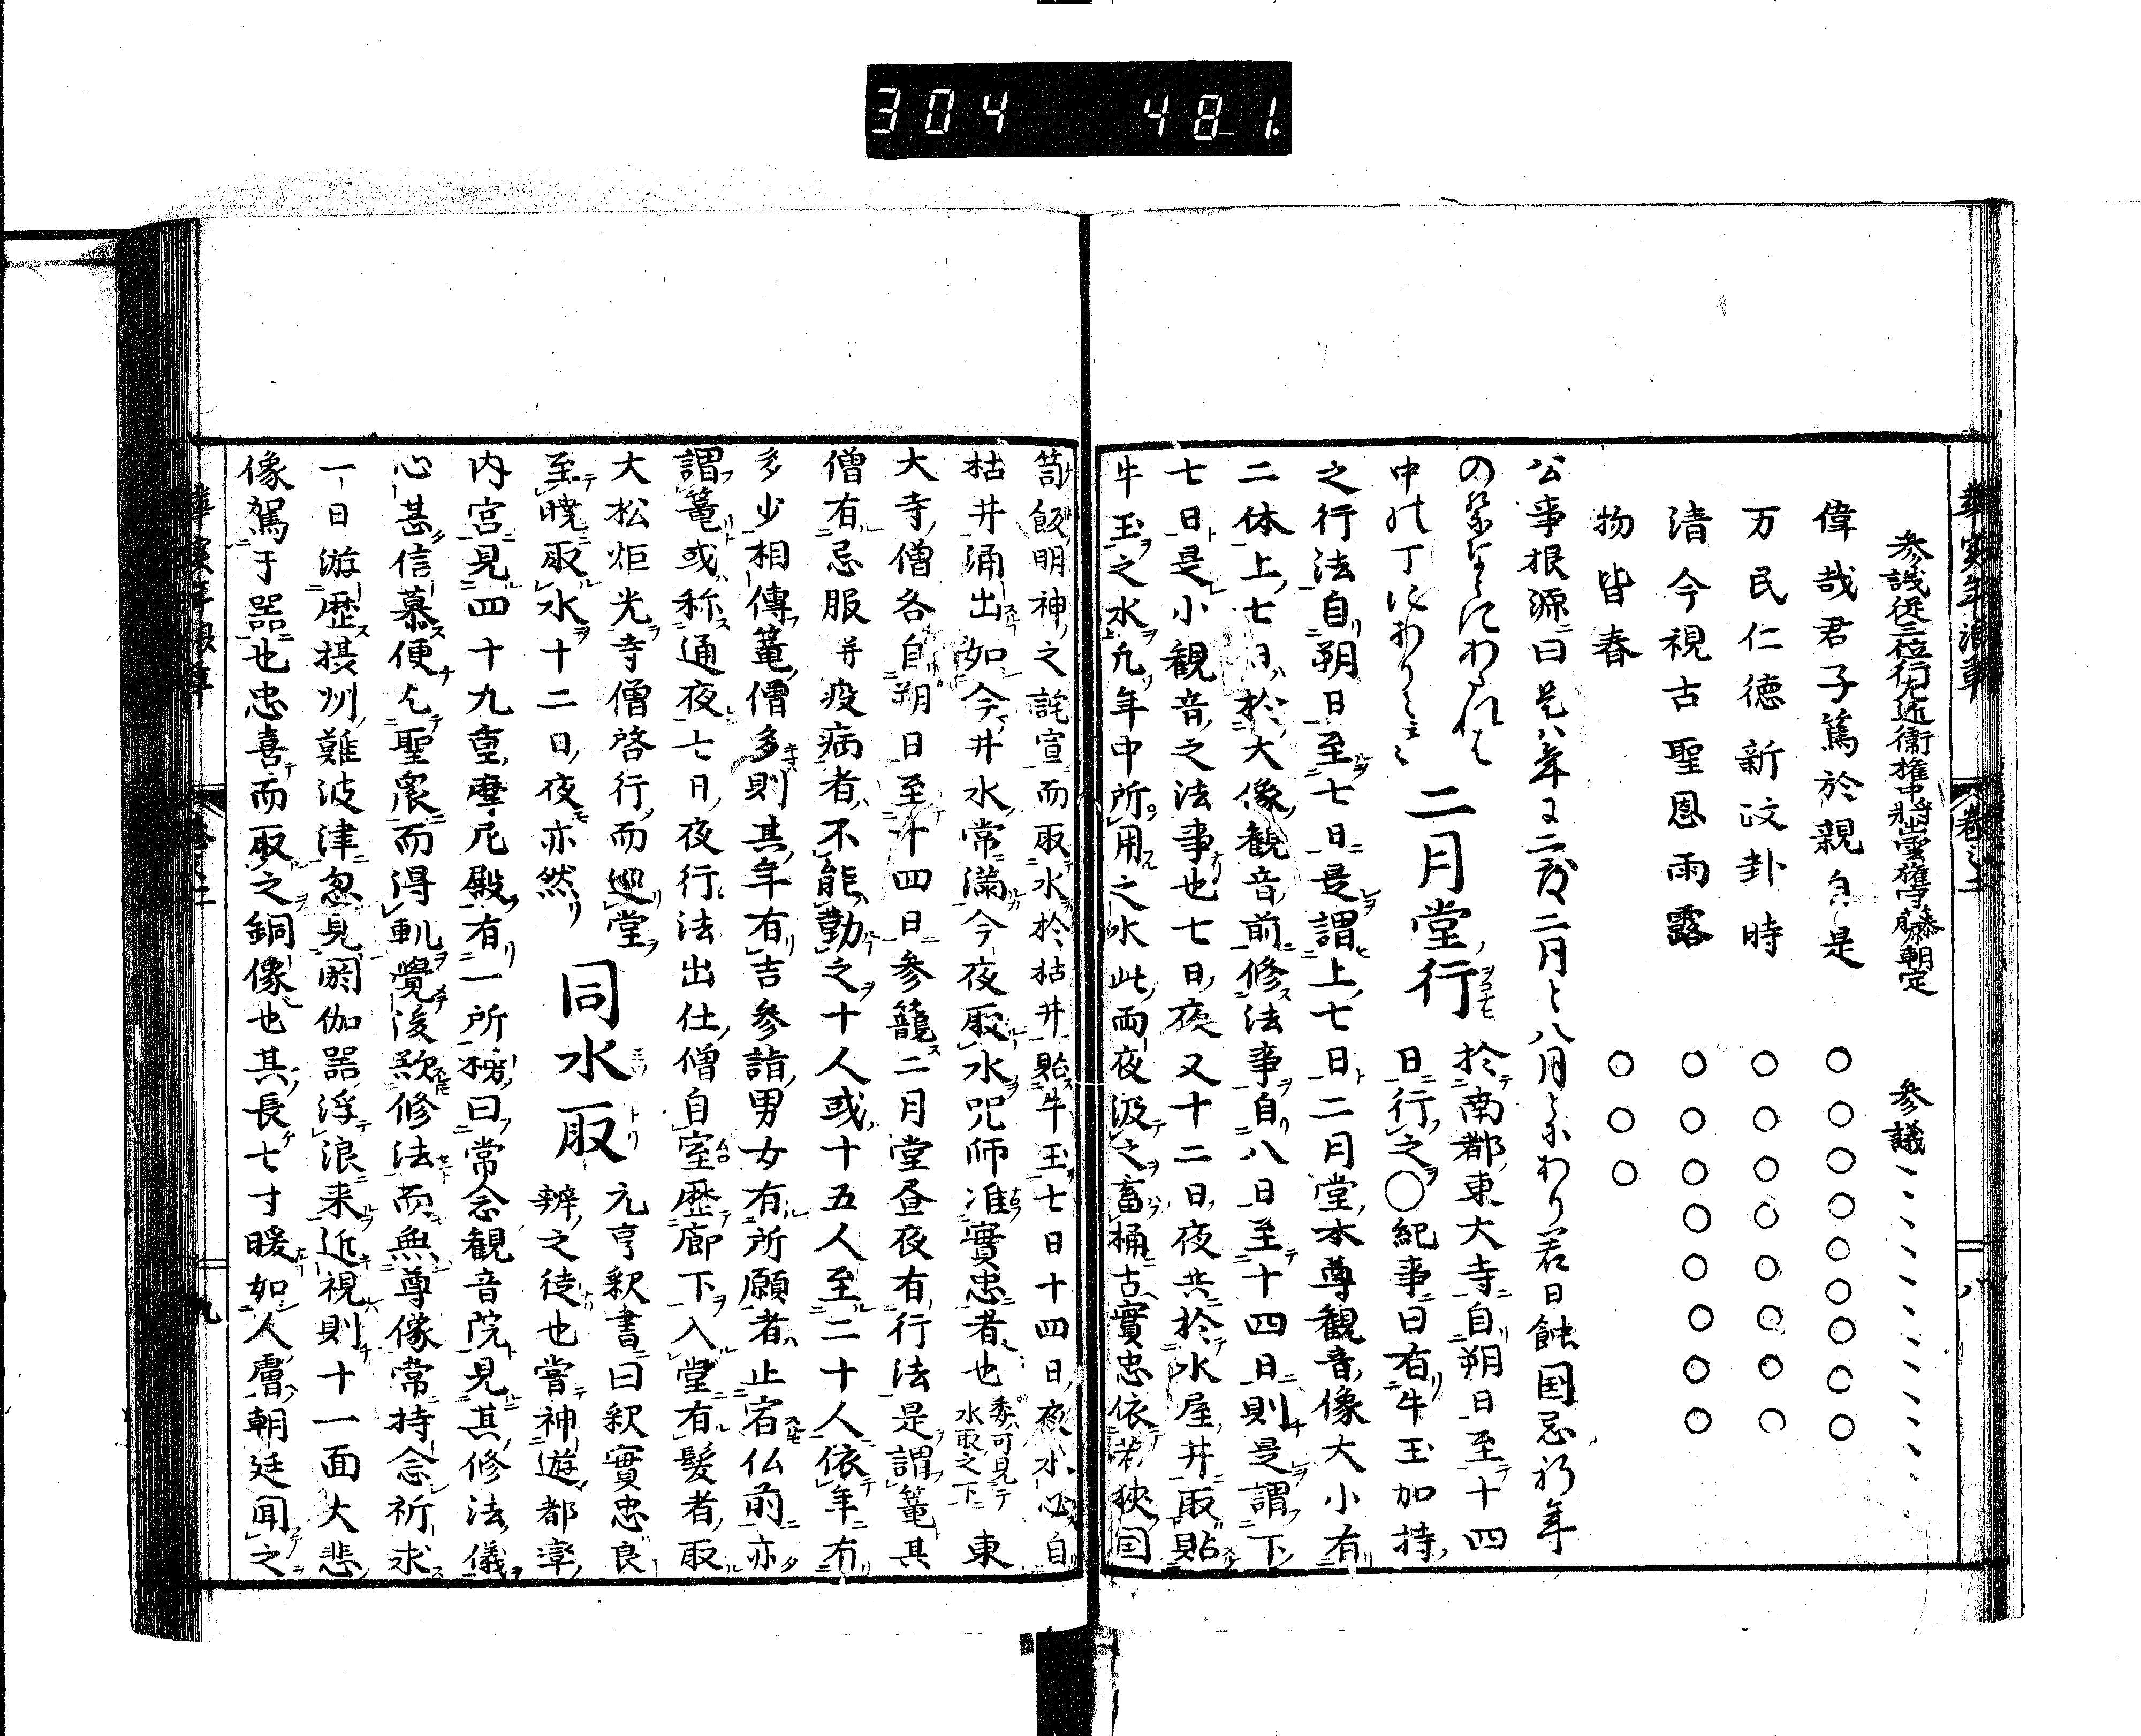 304 481
華実年浪草 巻之二 八
参議従三位行左近衛権中将 藤朝定 参議
偉哉君子篤於親 是 〇〇〇〇〇〇〇〇
万民仁徳新 卦時 〇〇〇〇〇〇〇〇
清今視古聖恩雨露 〇〇〇〇〇〇〇〇
物皆春 〇〇〇
公事根源曰是ハ年に二度二月と八月とにあり若日蝕国忌祈年
の祭などにあたれは
中の丁にありと云々 二月堂行 於南都東大寺自朔日至十四
日行之〇紀事曰有牛玉加持
之行法自朔日至七日是謂上七日二月堂本尊観音像大小有
二体上七日於大像観音前修法事自八日至十四日則是謂下
七日是小観音之法事也七日夜又十二日夜共於水屋井取貼
牛玉之水凡年中所用之水此両夜汲之畜桶古實忠依若狭国
笥飯明神之詫宣而取水於枯井貼牛玉七日十四日夜水必自
枯井涌出如今井水常満今夜取水咒師准實忠者也 委可見水取之下 東
大寺僧各自朔日至十四日参籠二月堂昼夜有行法是謂篭其
僧有忌服并疫病者不能勤之十人或十五人至二十人依年有
多少相傳篭僧多則其年有吉参詣男女有所願者止宿仏前亦
謂篭或称通夜七日夜行法出仕僧自室歴廊下入堂有髪者取
大松炬光寺僧啓行而巡堂
至暁取水十二日夜亦然 同水取 元亨釈書曰釈實忠良
辨之徒也嘗神遊都率
内宮見四十九重摩尼殿有一所榜曰常念観音院見其修法儀
心甚信慕便乞聖衆而得軌覚後欲修法而無尊像常持念祈求
一日游歴摂州難波津忽見閼伽器浮浪来近視則十一面大悲
像駕于器也忠喜而取之銅像也其長七寸暖如人膚朝廷聞之
華実年浪草 巻之二 九